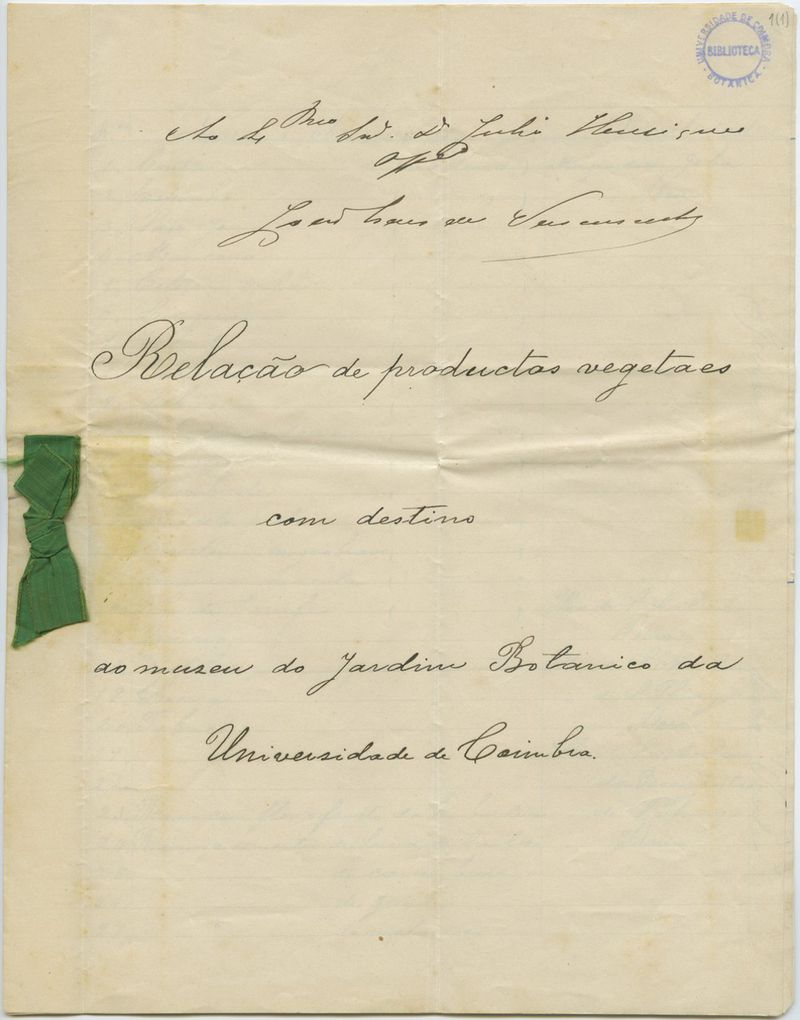 1(1)
UNIVERSIDADE DE COIMBRA
BIBLIOTECA
BOTANICA
Ao Snr. Dr. Julio Henriques
Offe
de
Relação de productos vegetaes
com destino
ao museu do Jardim Botanico da
Universidade de Coimbra.